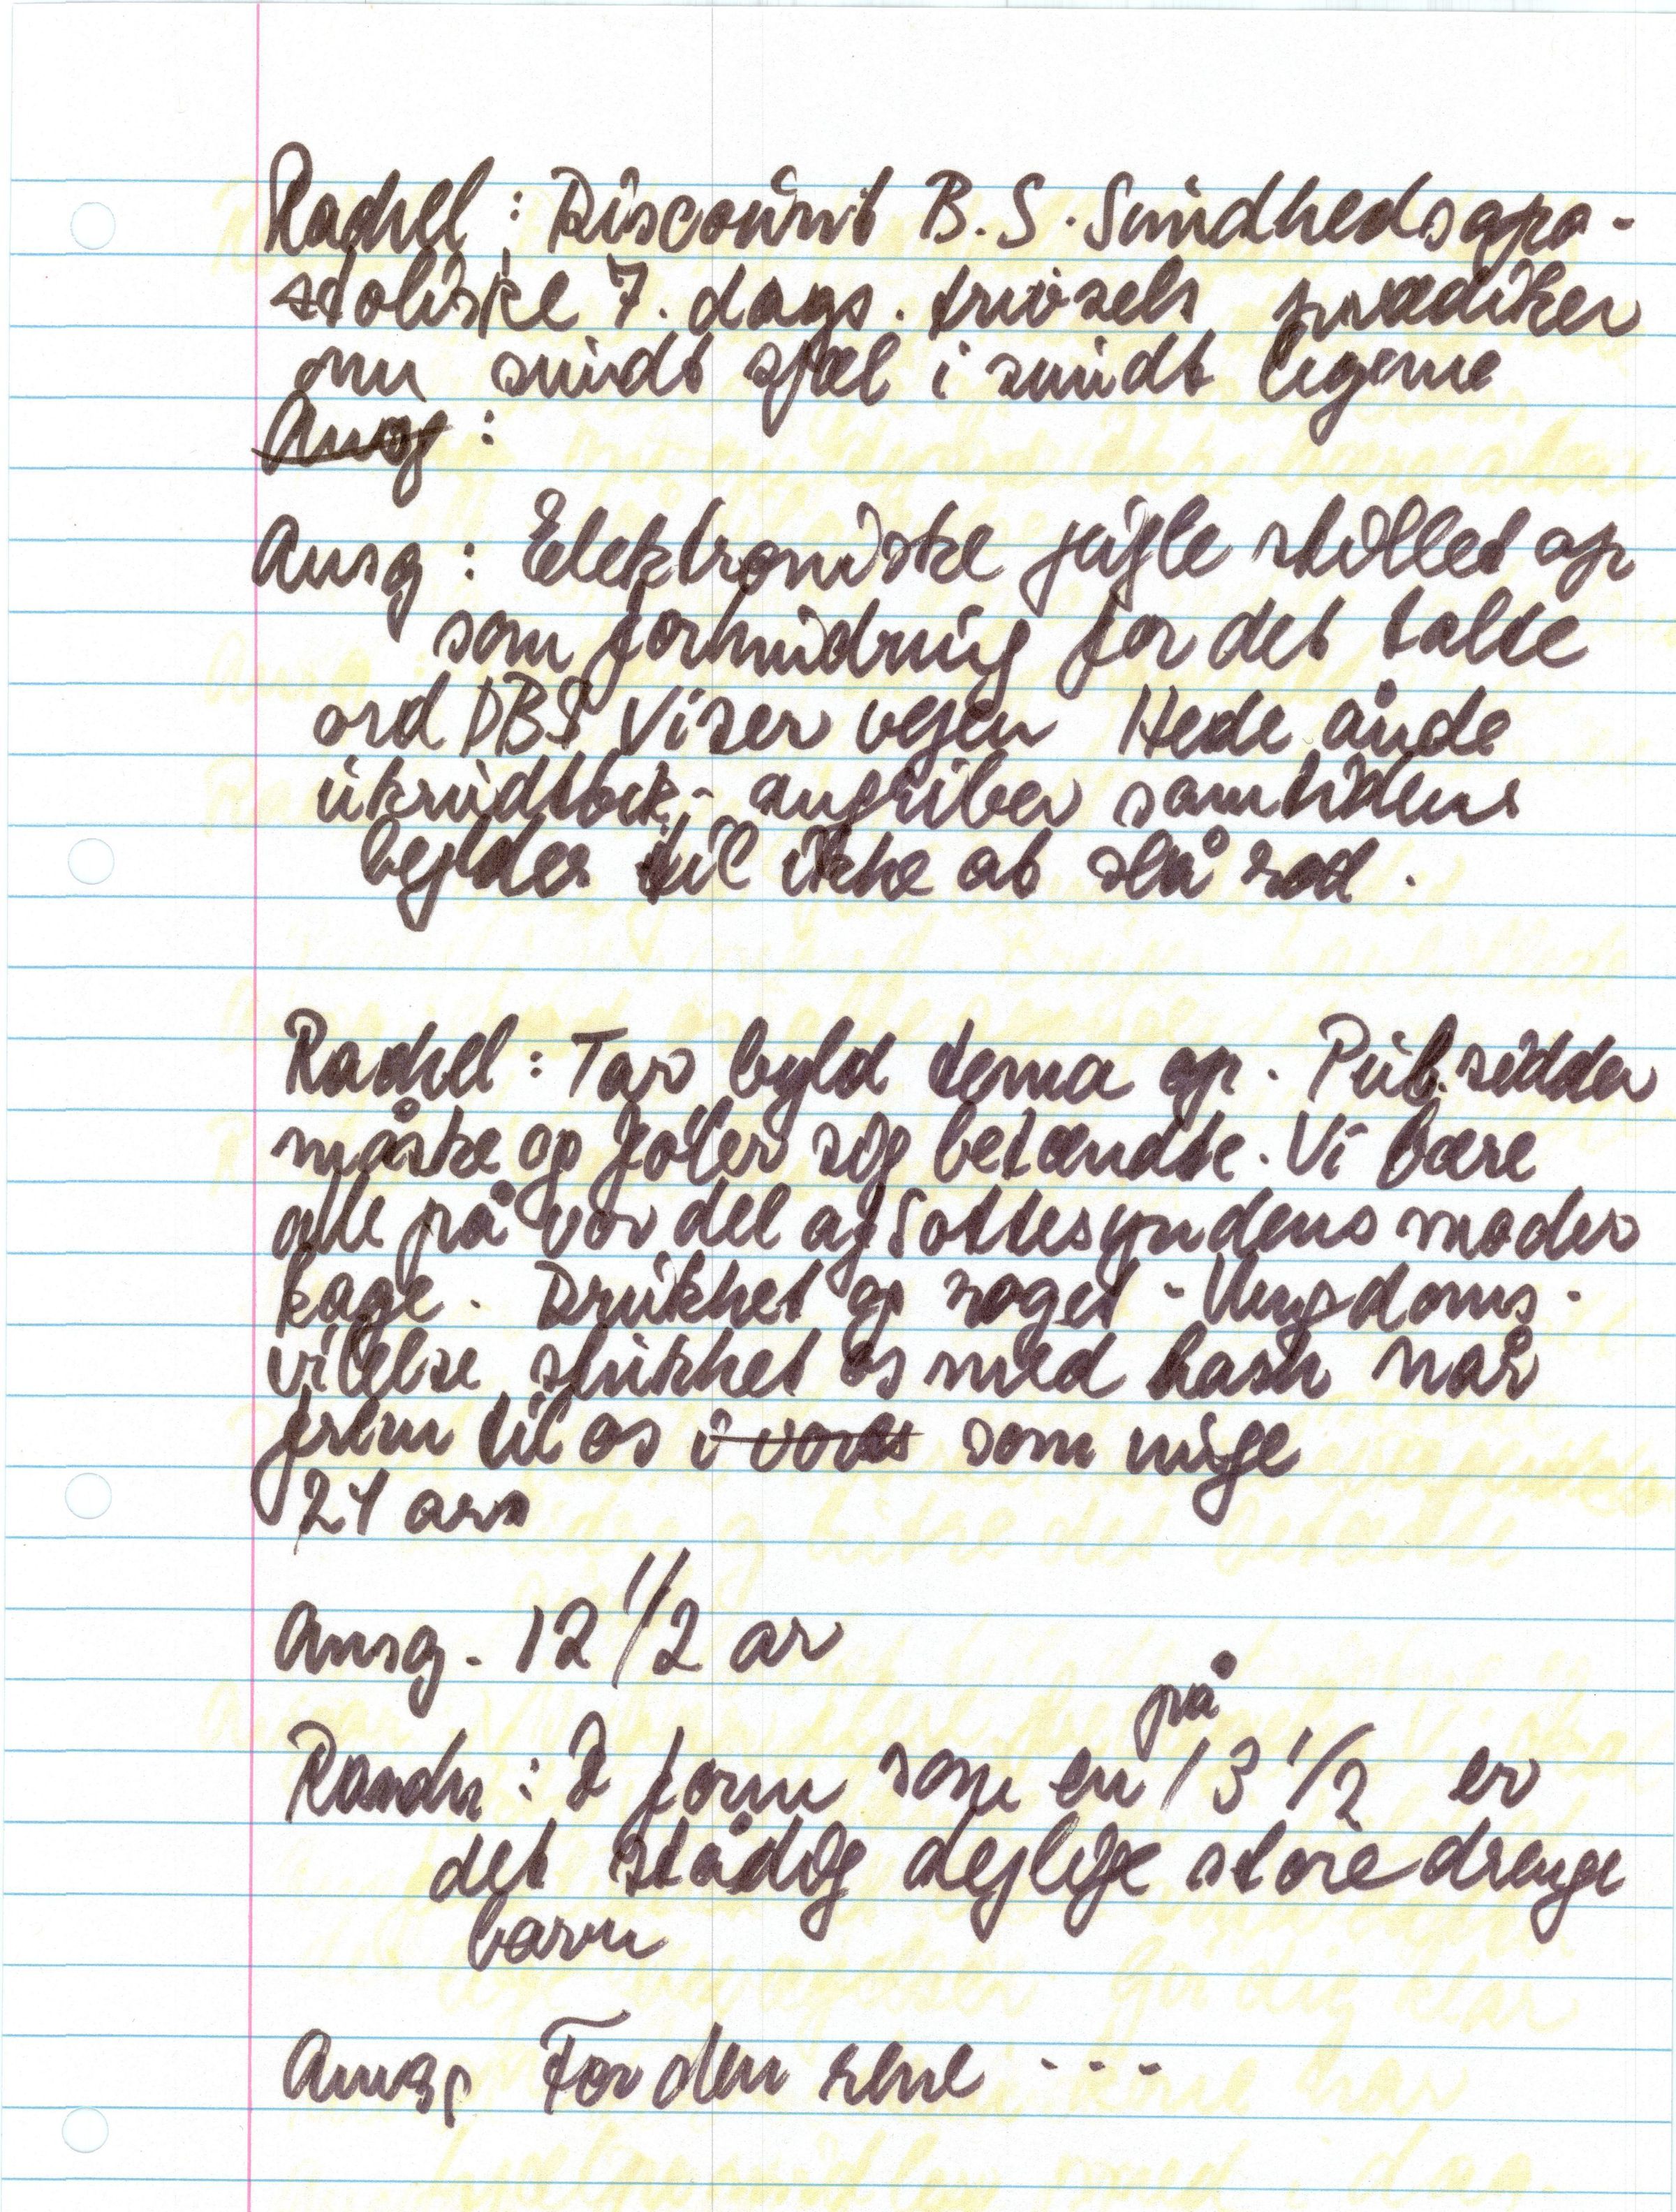 Rachel : Discount B.S. Sundhedsapo-
stoliske 7. dags. trivsels prædiker
nu sundt sjæl i sundt legeme
Ausg :
Ausg : Elektroniske fugle stillet op
som formidning for det talte
ord DBS Viser vejen Hede ånde
ukrudtbek,- angriber samtidens
bylder til ikke at slå rod .
Rachel : Tar byld tema op . Pub. sidder
måske og føler sig betændte. Vi bære
alle på vor del af Sottesyndens moder
kage . Drukket og roget - Ungdoms -
vilelse slukket os med hash når
frem til os i vores som unge
21 ars
Ausg . 12 1/2 ar
på
Rach : I form som en 13 1/2 er
det stådig dejlige store drenge
barn
Ausg, For den rene . . .